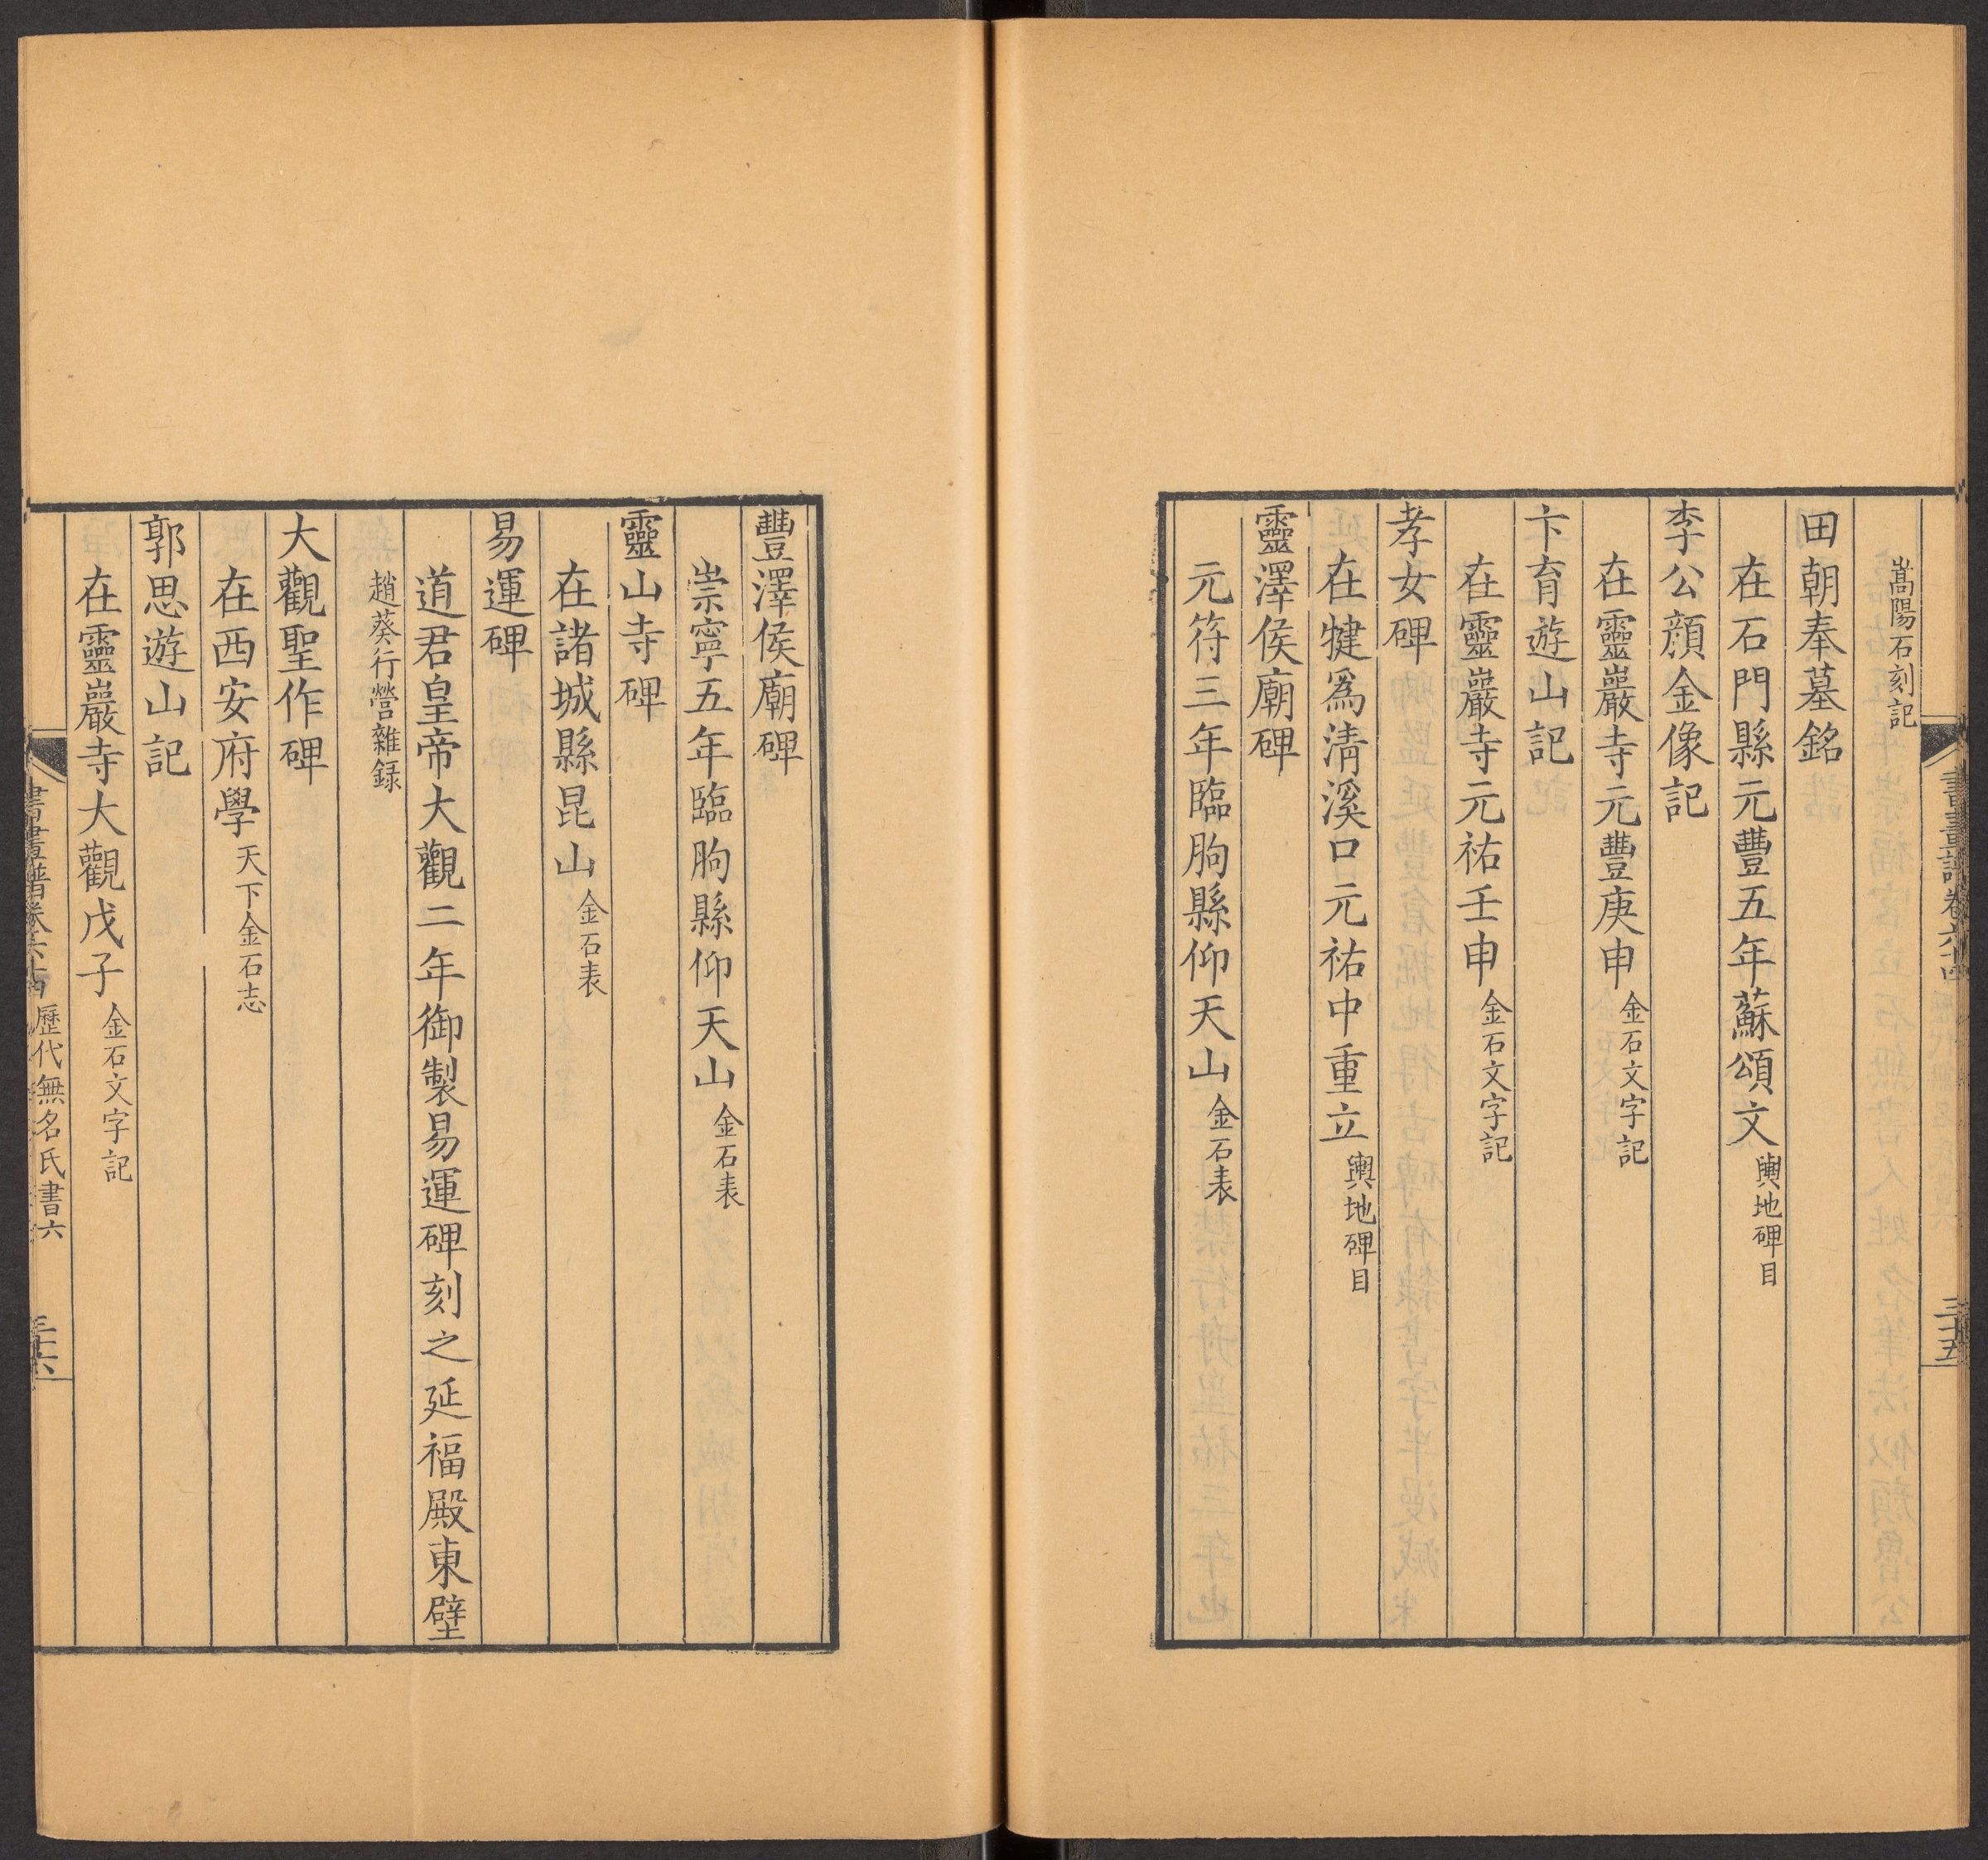 書畫譜卷六十四
三十五
嵩陽石刻記
田朝奉墓銘
在石門縣元豐五年蘇頌文輿地碑目
李公顏金像記
在靈巖寺元豐庚申金石文字記
卞育遊山記
在靈巖寺元祐壬申金石文字記
孝女碑
在犍為清溪口元祐中重立輿地碑目
靈澤侯廟碑
元符三年臨朐縣仰天山金石表
豐澤侯廟碑
崇寧五年臨朐縣仰天山金石表
靈山寺碑
在諸城縣昆山金石表
易運碑
道君皇帝大觀二年御製易運碑刻之延福殿東壁
趙葵行營雜録
大觀聖作碑
在西安府學天下金石志
郭思遊山記
在靈巖寺大觀戊子金石文字記
書畫譜卷六十四 歷代無名氏書六 三十六